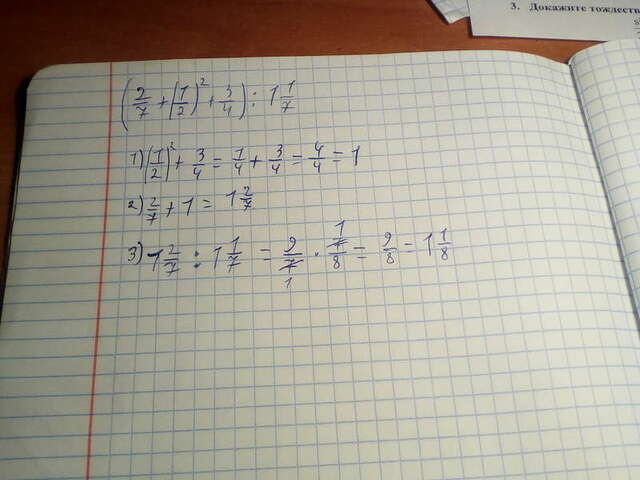 3. Докажите тождеств
(2/7 + (1/2)² + 3/4) : 1 1/7
1) (1/2)² + 3/4 = 1/4 + 3/4 = 4/4 = 1
2) 2/7 + 1 = 1 2/7
3) 1 2/7 : 1 1/7 = 9/7 1 · 1 7/8 = 9/8 = 1 1/8